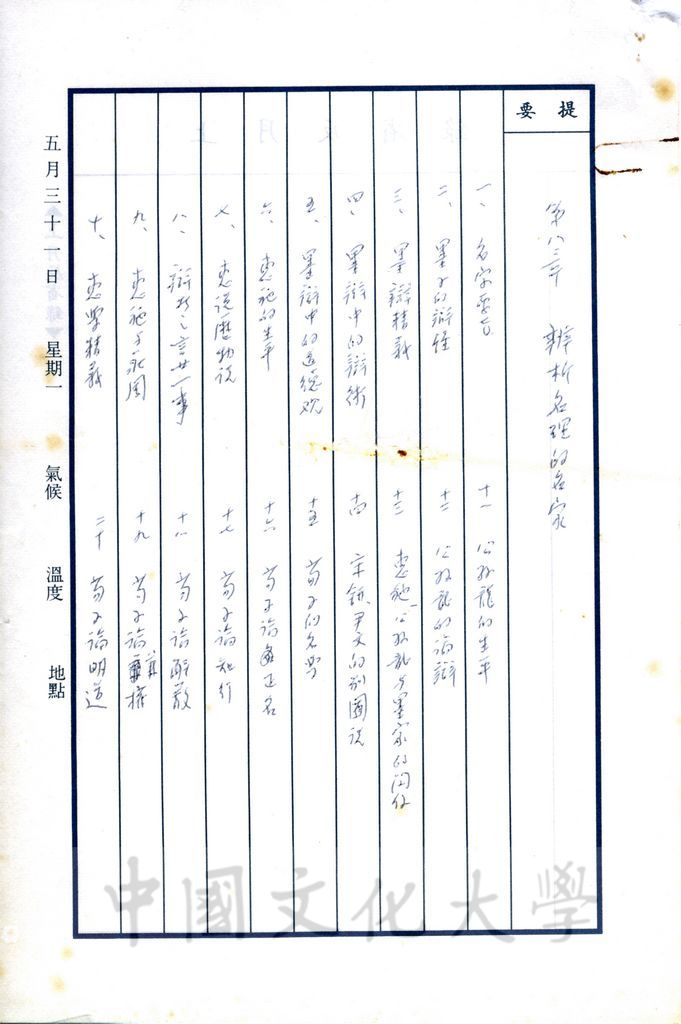 提要
第八章 辨析名理的名家
一、名家要旨
十一 公孫龍的生平
二、墨子的辯經
十二 公孫龍的論辯
三、墨辯精義
十三 惠施、公孫龍與墨家的関係
四、墨辯中的辯術
十四 宋鈃、尹文的別囿說
五、墨辯中的道德观
十五 荀子的名學
六、惠施的生平
十六 荀子論正名
七、惠施歷物說
十七 荀子論知行
八、辯者之言廿一事
十八 荀子論解蔽
九、惠施与莊周
十九 荀子論權
十、惠學精義
二十 荀子論明道
五月三十一日 星期一 氣候 溫度 地點
中國文化大學